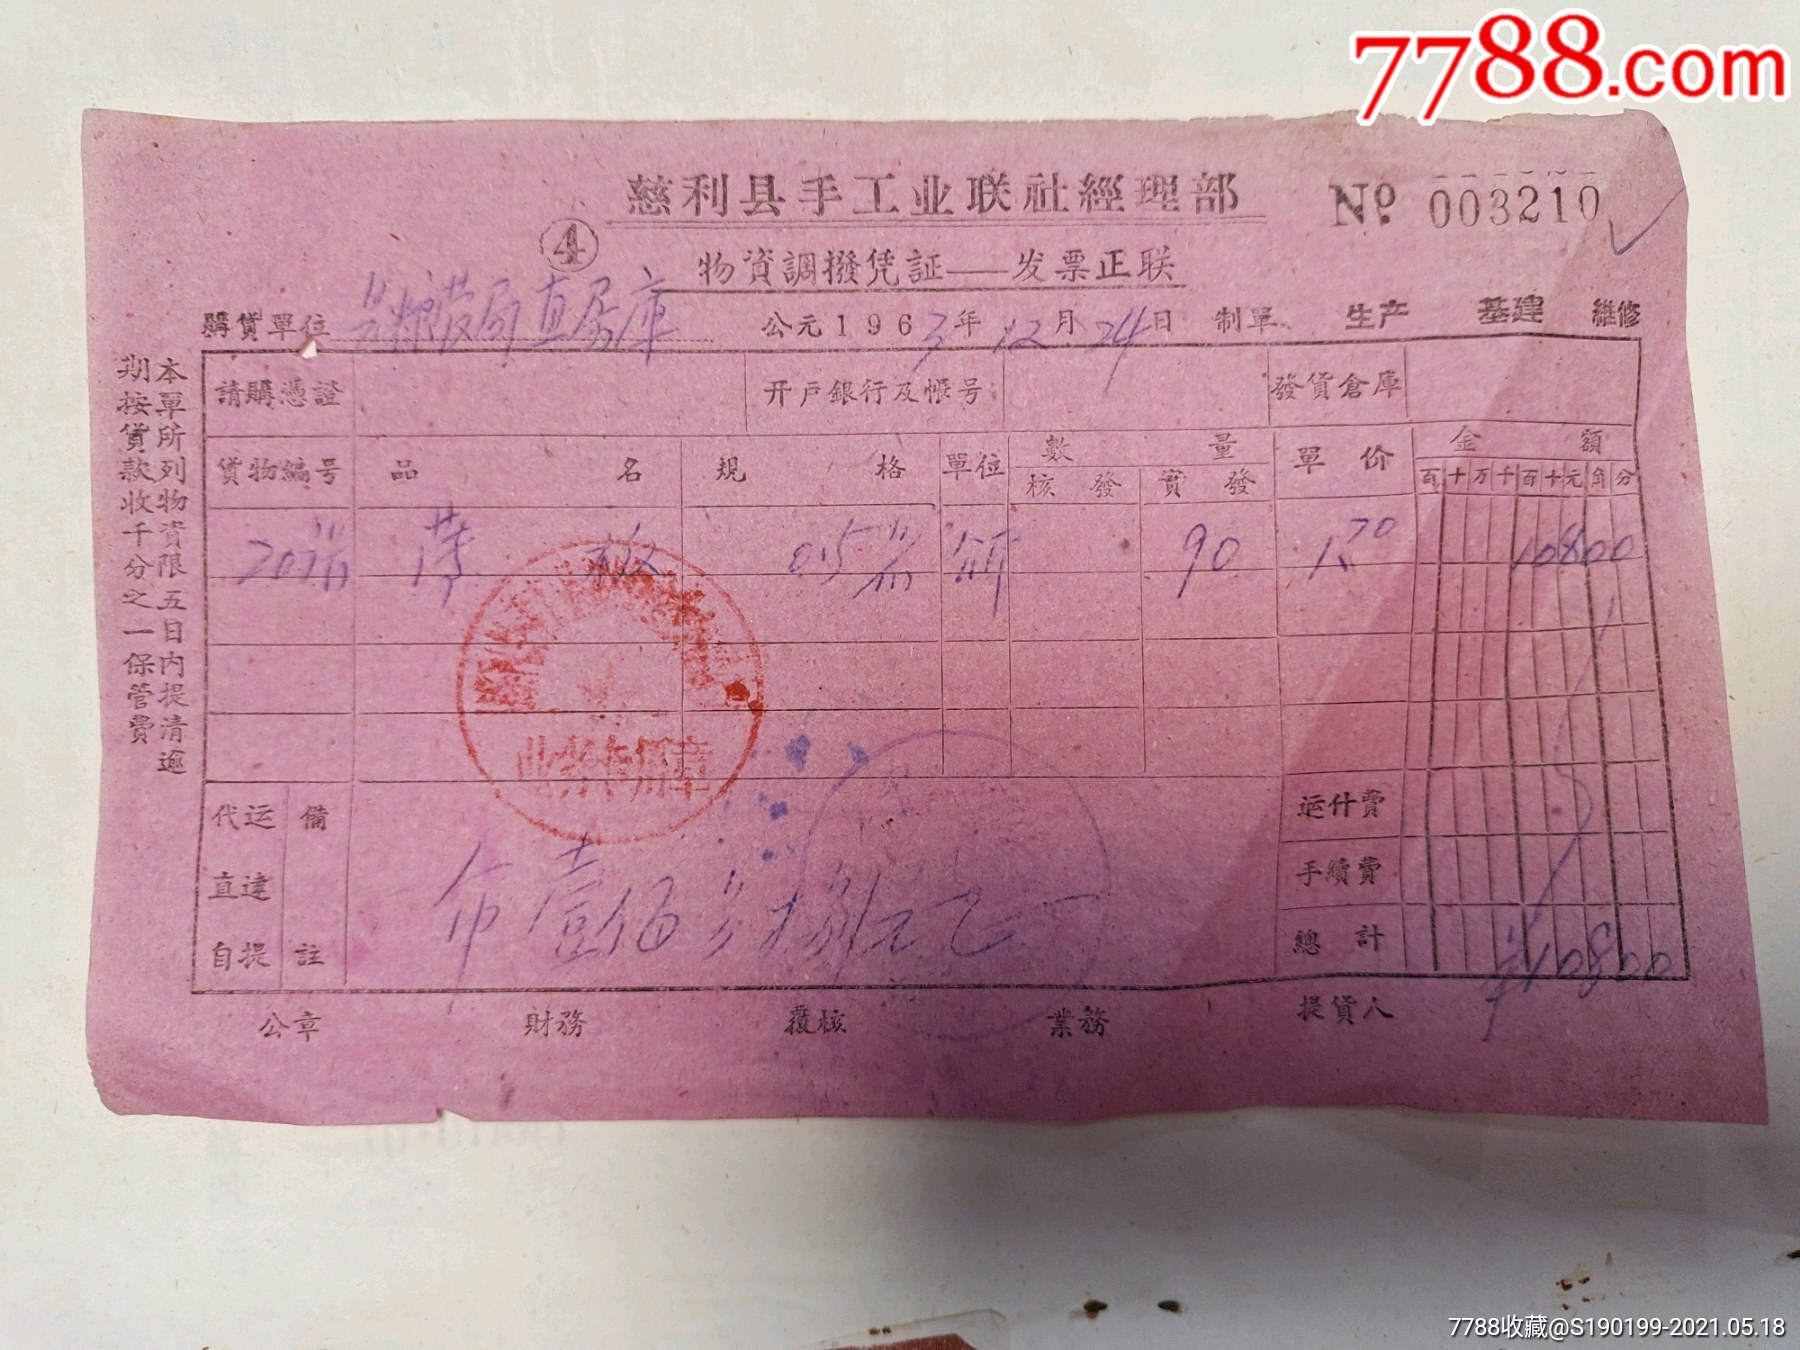 7788.com
慈利县手工业联社經理部
№ 003210
④
物資調撥凭証——发票正联
購貨單位 粮 局直属庫 公元1963年12月24日 制單 生产 基建 維修
本單所列物資限五日内提清逾
期按貨款收千分之一保管費
請購憑證 开戶銀行及帐号 發貨倉庫
貨物編号 品名 規格 單位 數量 單价 金額
核發 實發 百十万千百十元角分
薄板 0.5 斤 90 1.20 10800
业务专用章
代运 備 运什費
直達 手續費
自提 註 總計 ¥10800
壹佰 捌元
公章 財務 覆核 業務 提貨人
7788收藏@S190199-2021.05.18